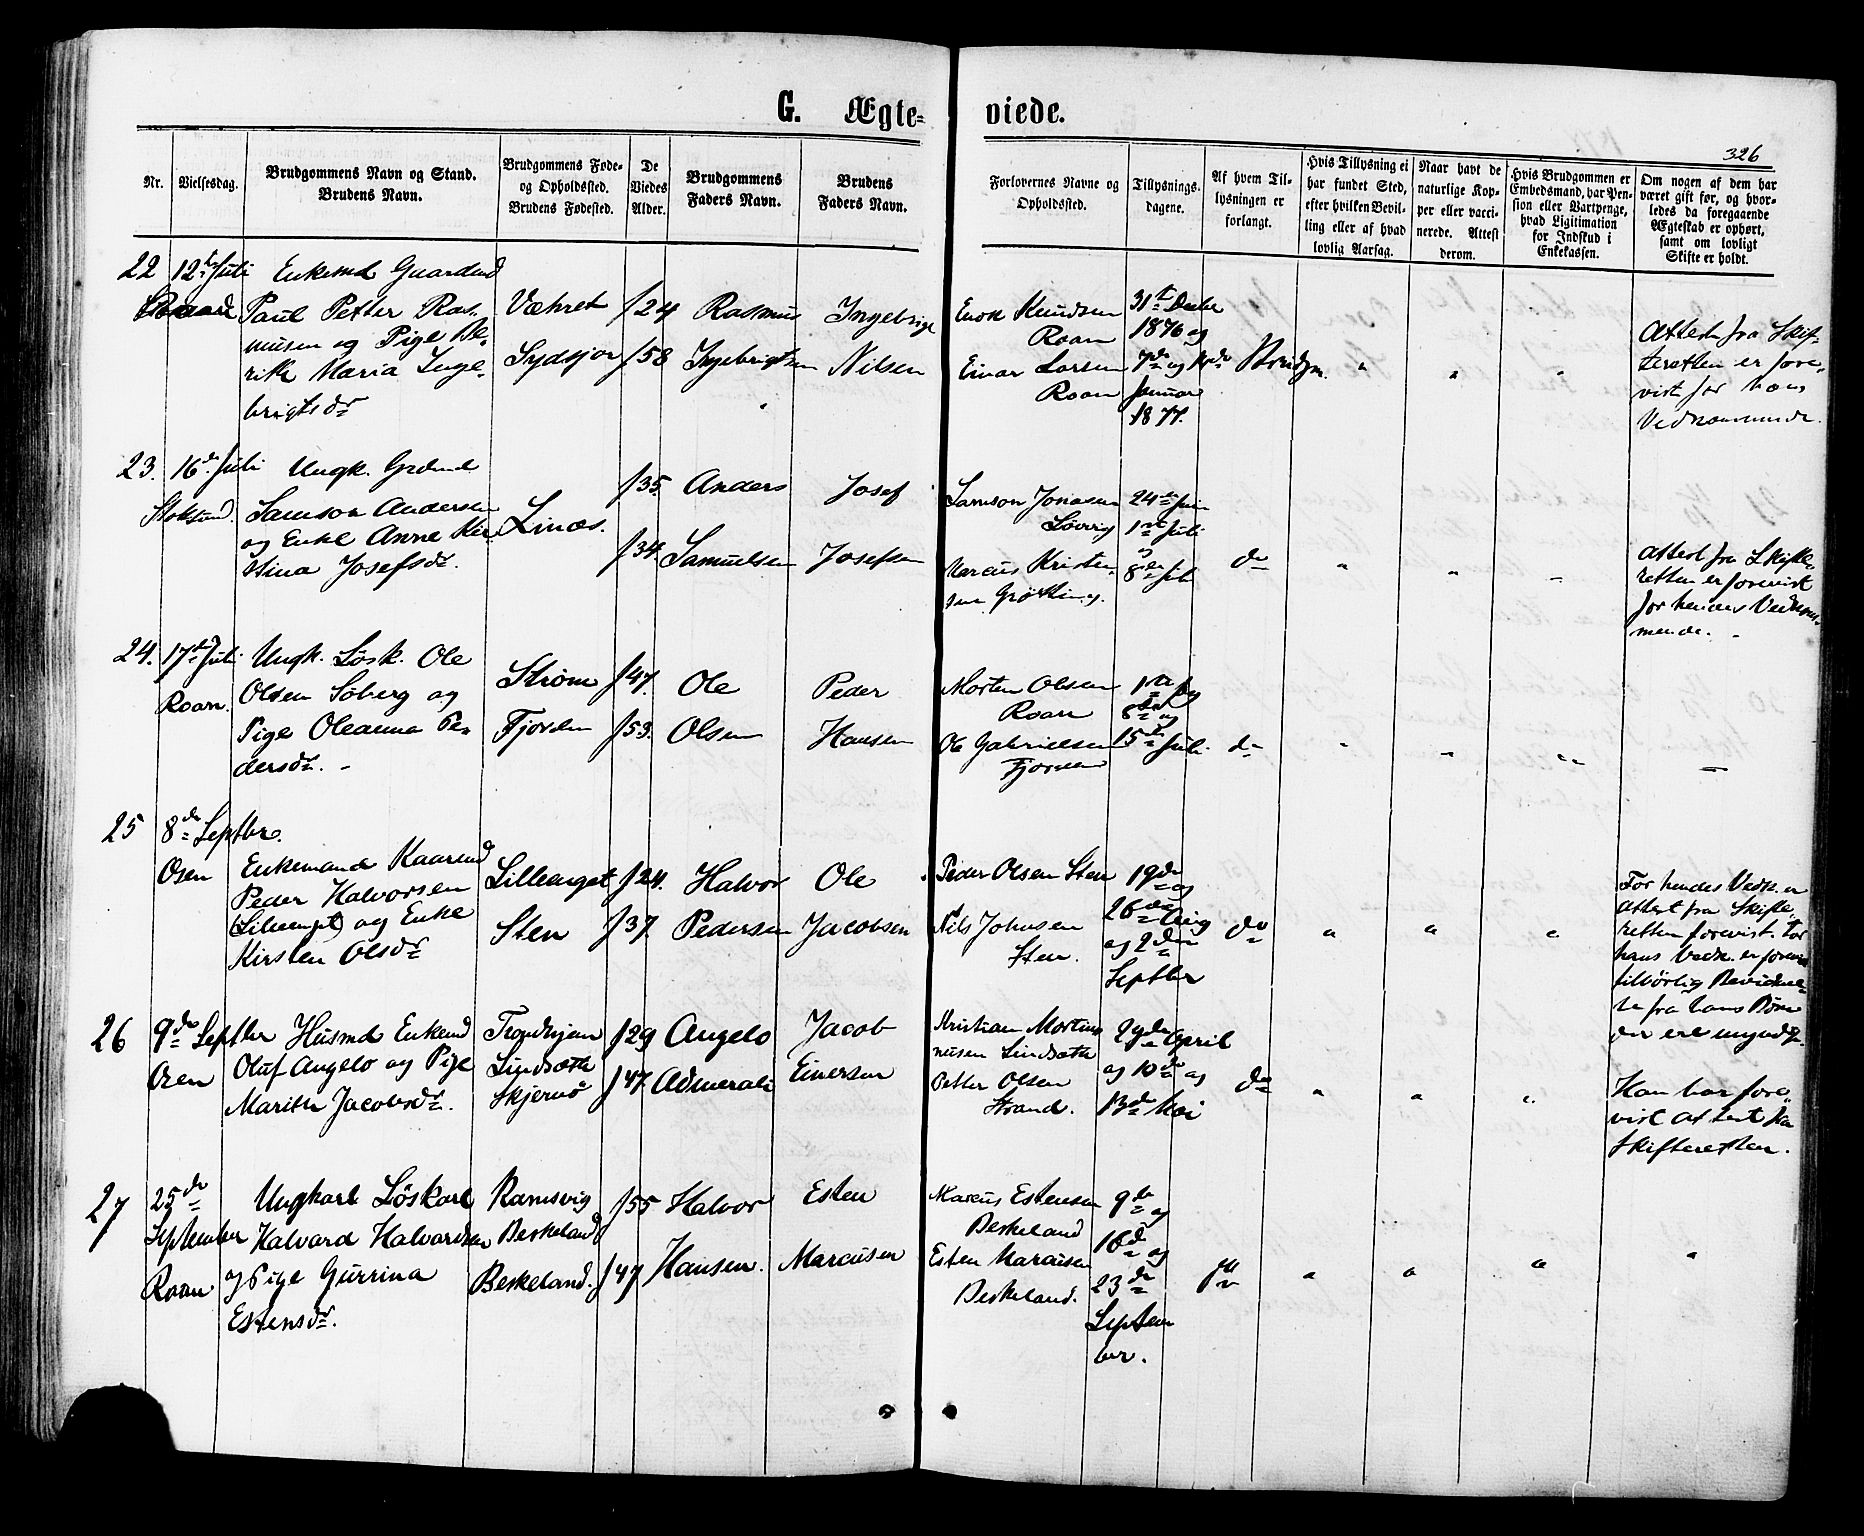 G. Ægte=
viede.
326
Nr.
Vielsesdag.
Brudgommens Navn og Stand.
Brudens Navn.
Brudgommens Føde-
og Opholdssted.
Brudens Fødested.
De
Viedes
Alder.
Brudgommens
Faders Navn.
Brudens
Faders Navn.
Forlovernes Navne og
Opholdssted.
Tillysnings-
dagene.
Af hvem Til-
lysningen er
forlangt.
Hvis Tillysning ei
har fundet Sted,
efter hvilken Bevil-
ling eller af hvad
lovlig Aarsag.
Naar havt de
naturlige Kop-
per eller vacci-
nerede. Attest
derom.
Hvis Brudgommen er
Embedsmand, har Pen-
sion eller Vartpenge,
hvad Ligitimation
for Indskud i
Enkekassen.
Om nogen af dem har
været gift før, og hvor-
ledes da foregaaende
Ægteskab er ophørt,
samt om lovligt
Skifte er holdt.
22
12te Juli
Enkemd Gaardmd
Paul Petter Ras-
musen og Pige Be-
rith Maria Inge-
brigtsdr
Sydsjør
f24
f58
Rasmus
Ingebrigtsen
Ingebrigt
Nilsen
Enok Knudsen
Roan
Einar Larsen
Roan
31te Decbr
1876 og
7de og 14de
Januar
1877.
Brudgm.
Attest fra Skif-
teretten er fore-
vist for hans
Vedkommende.
23.
16de Juli
Stoksund.
Ungk. Grdmd
Samson Andersen
og Enke Anne Kir-
stina Josefsdr.
Linæs.
f35.
f34.
Anders
Samuelsen
Josef
Josefsen
Samson Jonasen
Marcus Kristen-
sen
24de Juni
1ste Juli
8de Juli
do
Attest fra Skifte-
retten er forevist
for hendes Vedkom-
mende. -
24.
17de Juli
Roan.
Ungk. Løsk. Ole
Olsen Soberg og
Pige Oleanna Pe-
dersdr. -
Strøm
Fjorden
f47.
f53.
Ole
Olsen
Peder
Hansen
Morten Olsen
Roan
Ole Gabrielsen
Fjorden
1ste og
8de og
15de Juli.
do
25
8de Septbr.
Osen
Enkemand Kaarmd
Peder Halvorsen
(Lilleenget) og Enke
Kirsten Olsdr
Lilleenget
Sten
f24.
f37.
Halvor
Pedersen
Ole
Jacobsen
Peder Olsen Sten
Nils Johnsen
Sten.
19de
26de Aug
og 2den
Septbr
do
For hendes Vedk. er
Attest fra Skifte-
retten forevist. For
hans Vedk. er forevist
tilbørlig
te fra hans Børn
der ere myndge.
26
9de Septbr
Osen
Husmd Enkemd
Oluf Angelo og Pige
Marith Jacobsdr.
Trondhjem
Lindsæth
Skjervø
f29
f47.
Angelo
Admerali
Jacob
Einersen
Kristian Martinu-
nusen Lindsæth
Petter Olsen
Strand.
29de April
og 10de og
13de Mai
do
Han har fore-
vist Attest fra
Skifteretten.
27
25de
September
Roan
Ungkarl Løskarl
Halvard Halvardsen
og Pige Gurrina
Estensdr.
Ramsvig
Beskeland
Beskeland.
f55
f47.
Halvor
Hansen.
Esten
Marcusen
Marcus Estensen
Beskeland
Esten Marcusen
Beskeland.
9de og
16de og
23de
Septem
ber.